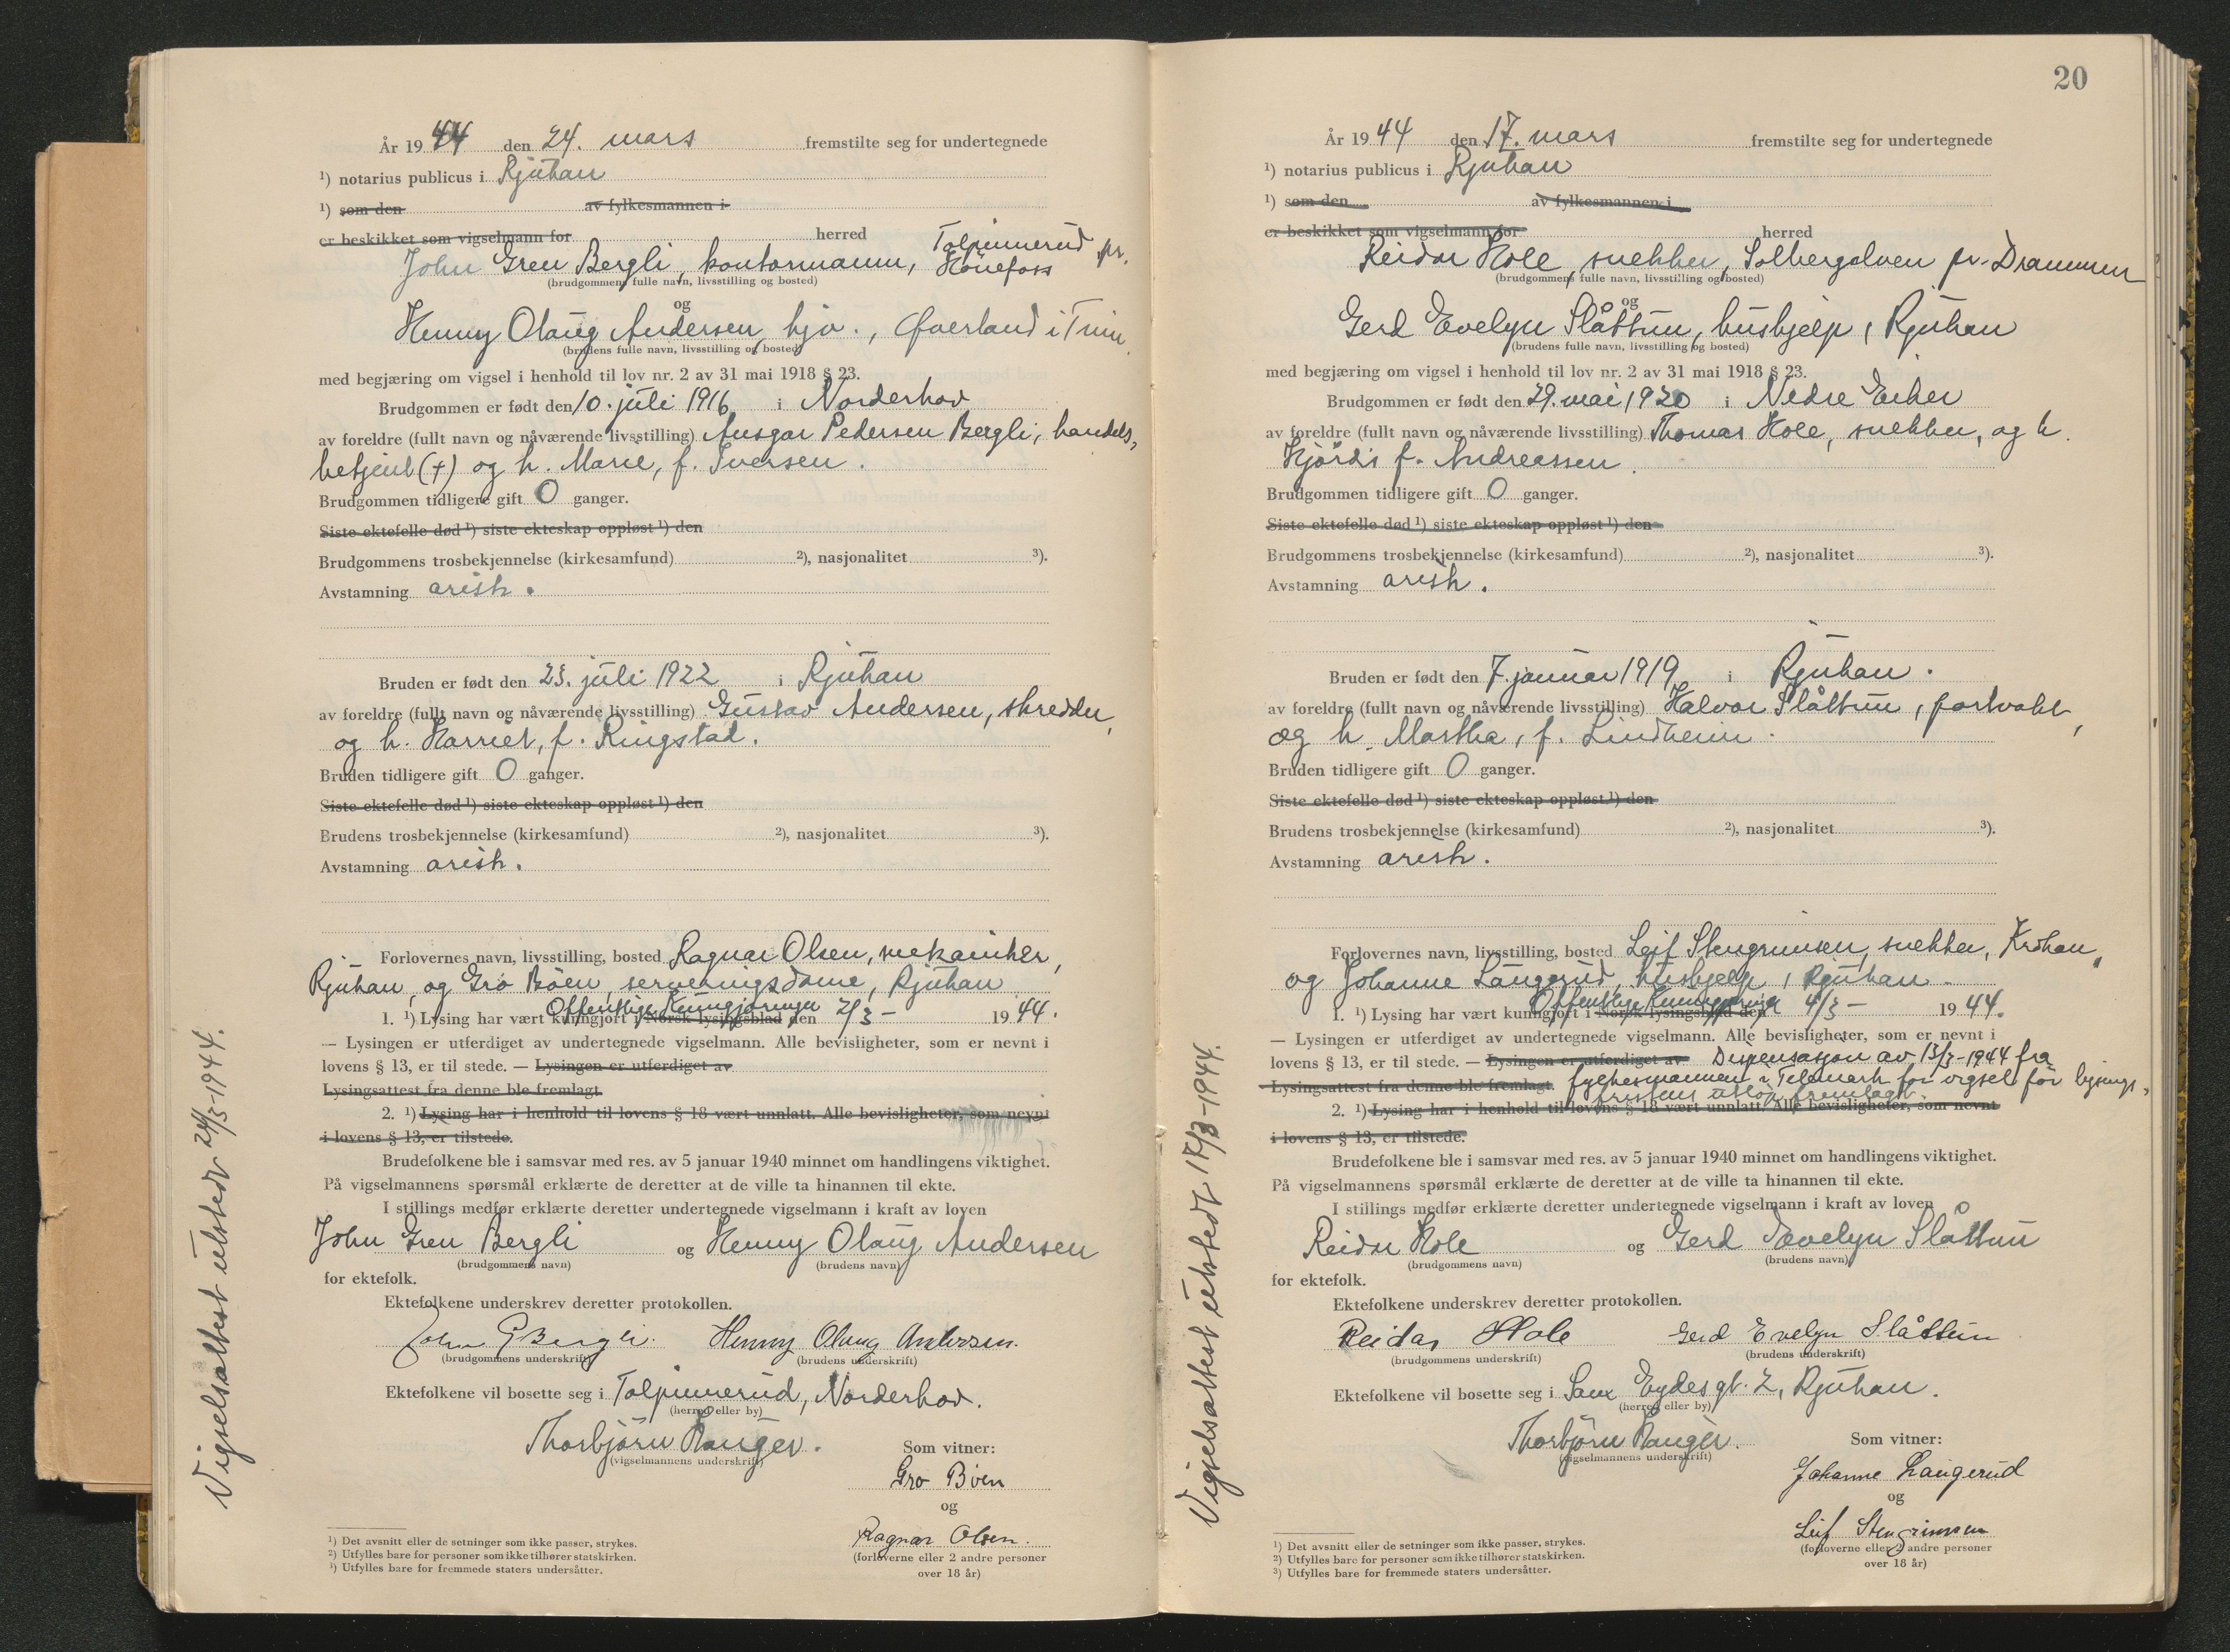 År 1944 den 24. mars fremstilte seg for undertegnede
¹) notarius publicus i Rjukan
¹) som den av fylkesmannen i
er beskikket som vigselmann for herred
Tolpinnerud pr.
John Gren Bergli, kontormann, Hönefoss
(brudgommens fulle navn, livsstilling og bosted)
og
Henny Olaug Andersen, hjv., Överland i Tinn.
(brudens fulle navn, livsstilling og bosted)
med begjæring om vigsel i henhold til lov nr. 2 av 31 mai 1918 § 23.
Brudgommen er født den 10. juli 1916 i Norderhov
av foreldre (fullt navn og nåværende livsstilling) Ansgar Pedersen Bergli, handels-
betjent (+) og h. Marie, f. Iversen.
Brudgommen tidligere gift 0 ganger.
Siste ektefelle død ¹) siste ekteskap oppløst ¹) den
Brudgommens trosbekjennelse (kirkesamfund) ²), nasjonalitet ³).
Avstamning arisk.
Bruden er født den 23. juli 1922 i Rjukan
av foreldre (fullt navn og nåværende livsstilling) Gustav Andersen, skredder,
og h. Harriet, f. Ringstad.
Bruden tidligere gift 0 ganger.
Siste ektefelle død ¹) siste ekteskap oppløst ¹) den
Brudens trosbekjennelse (kirkesamfund) ²), nasjonalitet ³).
Avstamning arisk.
Forlovernes navn, livsstilling, bosted Ragnar Olsen, mekaniker,
Rjukan, og Gro Böen, serveringsdame, Rjukan
Offentlige Kunngjöringer
1. ¹) Lysing har vært kunngjort i Norsk lysingsblad den 2/3 - 1944.
— Lysingen er utferdiget av undertegnede vigselmann. Alle bevisligheter, som er nevnt i
lovens § 13, er til stede. — Lysingen er utferdiget av
Lysingsattest fra denne ble fremlagt.
2. ¹) Lysing har i henhold til lovens § 18 vært unnlatt. Alle bevisligheter, som nevnt
i lovens § 13, er tilstede.
Brudefolkene ble i samsvar med res. av 5 januar 1940 minnet om handlingens viktighet.
På vigselmannens spørsmål erklærte de deretter at de ville ta hinannen til ekte.
I stillings medfør erklærte deretter undertegnede vigselmann i kraft av loven
John Gren Bergli og Henny Olaug Andersen
(brudgommens navn) (brudens navn)
for ektefolk.
Ektefolkene underskrev deretter protokollen.
John G Bergli. Henny Olaug Andersen.
(brudgommens underskrift) (brudens underskrift)
Ektefolkene vil bosette seg i Tolpinnerud, Norderhov.
(herred eller by)
Thorbjörn Bauger.
(vigselmannens underskrift)
Som vitner:
Gro Böen
og
Ragnar Olsen.
(forloverne eller 2 andre personer
over 18 år)
¹) Det avsnitt eller de setninger som ikke passer, strykes.
²) Utfylles bare for personer som ikke tilhører statskirken.
³) Utfylles bare for fremmede staters undersåtter.
Vigselsattest utstedt 24/3-1944.
20
År 1944 den 17. mars fremstilte seg for undertegnede
¹) notarius publicus i Rjukan
¹) som den av fylkesmannen i
er beskikket som vigselmann for herred
Reidar Hole, snekker, Solbergelven pr. Drammen
(brudgommens fulle navn, livsstilling og bosted)
og
Gerd Evelyn Slåttun, hushjelp, Rjukan
(brudens fulle navn, livsstilling og bosted)
med begjæring om vigsel i henhold til lov nr. 2 av 31 mai 1918 § 23.
Brudgommen er født den 29. mai 1920 i Nedre Eiker
av foreldre (fullt navn og nåværende livsstilling) Thomas Hole, snekker, og h.
Hjördis f. Andreassen.
Brudgommen tidligere gift 0 ganger.
Siste ektefelle død ¹) siste ekteskap oppløst ¹) den
Brudgommens trosbekjennelse (kirkesamfund) ²), nasjonalitet ³).
Avstamning arisk.
Bruden er født den 7. januar 1919 i Rjukan.
av foreldre (fullt navn og nåværende livsstilling) Halvor Slåttun, portvakt,
og h. Martha, f. Lindheim.
Bruden tidligere gift 0 ganger.
Siste ektefelle død ¹) siste ekteskap oppløst ¹) den
Brudens trosbekjennelse (kirkesamfund) ²), nasjonalitet ³).
Avstamning arisk.
Forlovernes navn, livsstilling, bosted Leif Stengrimsen, snekker, Krokan,
og Johanne Langerud, hushjelp, Rjukan.
Offentlige Kunngjöringer
1. ¹) Lysing har vært kunngjort i Norsk lysingsblad den 4/3 - 1944.
— Lysingen er utferdiget av undertegnede vigselmann. Alle bevisligheter, som er nevnt i
lovens § 13, er til stede. — Lysingen er utferdiget av Dispensasjon av 13/3-1944 fra
Lysingsattest fra denne ble fremlagt. fylkesmannen i Telemark for vigsel för lysings-
fristens utlöp fremlagt.
2. ¹) Lysing har i henhold til lovens § 18 vært unnlatt. Alle bevisligheter, som nevnt
i lovens § 13, er tilstede.
Brudefolkene ble i samsvar med res. av 5 januar 1940 minnet om handlingens viktighet.
På vigselmannens spørsmål erklærte de deretter at de ville ta hinannen til ekte.
I stillings medfør erklærte deretter undertegnede vigselmann i kraft av loven
Reidar Hole og Gerd Evelyn Slåttun
(brudgommens navn) (brudens navn)
for ektefolk.
Ektefolkene underskrev deretter protokollen.
Reidar Hole Gerd Evelyn Slåttun
(brudgommens underskrift) (brudens underskrift)
Ektefolkene vil bosette seg i Sam Eydes gt. 2, Rjukan.
(herred eller by)
Thorbjörn Bauger.
(vigselmannens underskrift)
Som vitner:
Johanne Langerud
og
Leif Stengrimsen
(forloverne eller 2 andre personer
over 18 år)
¹) Det avsnitt eller de setninger som ikke passer, strykes.
²) Utfylles bare for personer som ikke tilhører statskirken.
³) Utfylles bare for fremmede staters undersåtter.
Vigselsattest utstedt 17/3-1944.